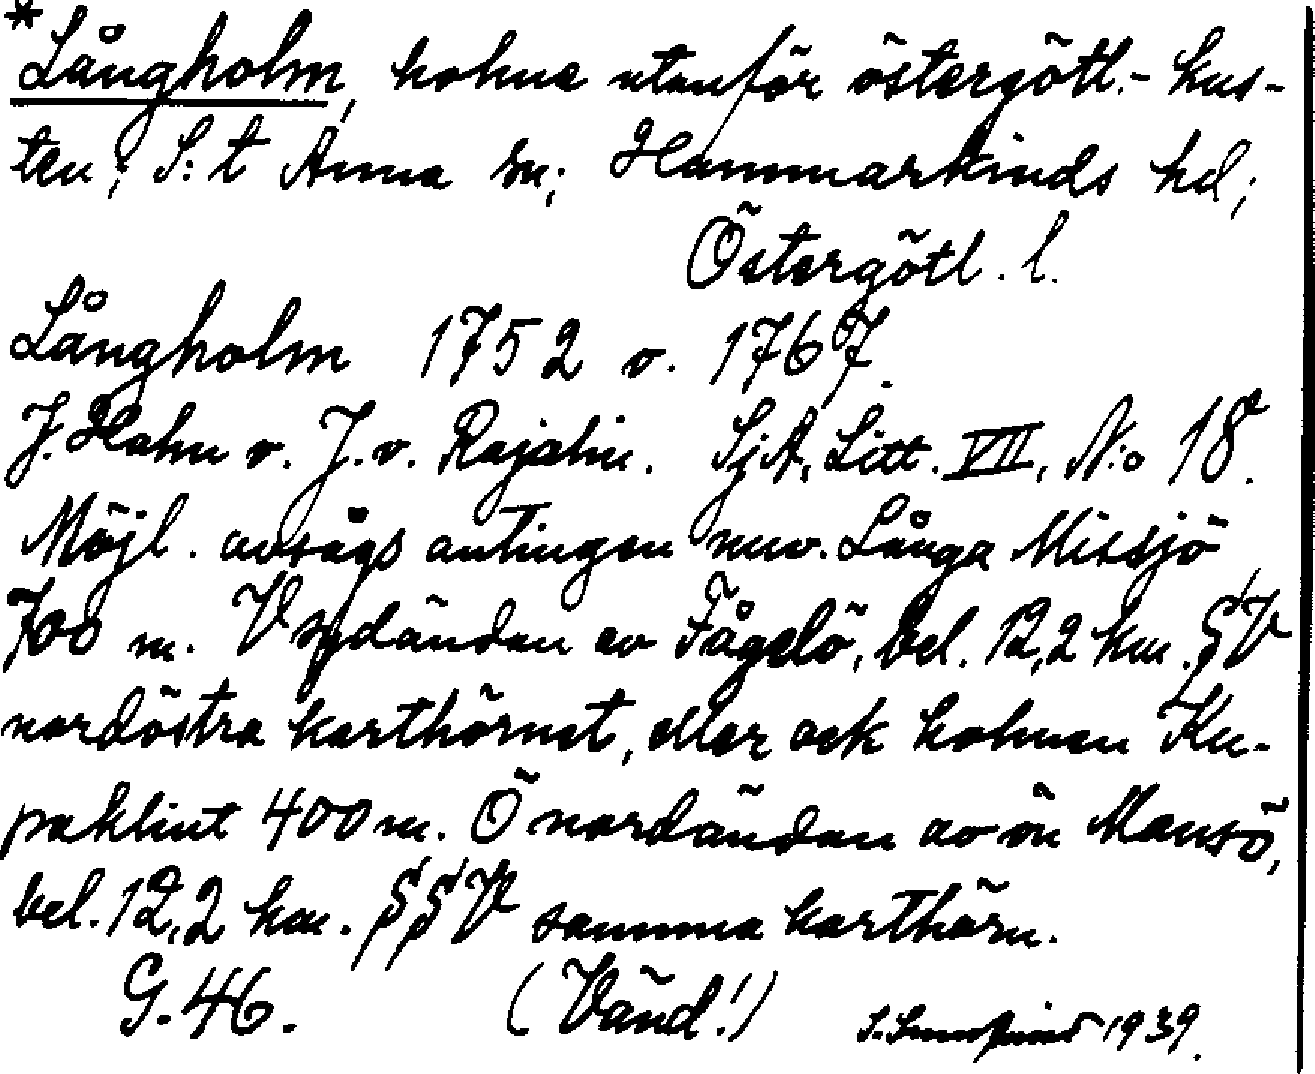 *Långholm, holme utanför östergötl.- kus-
ten; S:t Anna sn; Hammarkinds hd;
Östergötl. l.
Långholm 1752 o. 1767.
J. Hahn o. J. v. Rajalin. SjA, Litt. VII, N:o 18.
Möjl. avsågs antingen nuv. Långa Missjö
700 m. V sydändan av Fågelö, bel. 12,2 km. SV
nordöstra karthörnet, eller ock holmen Ku-
paklint 400 m. Ö nordändan av ön Mansö,
bel. 12,2 km. SSV samma karthörn.
G. 46. (Vänd!) 1939.